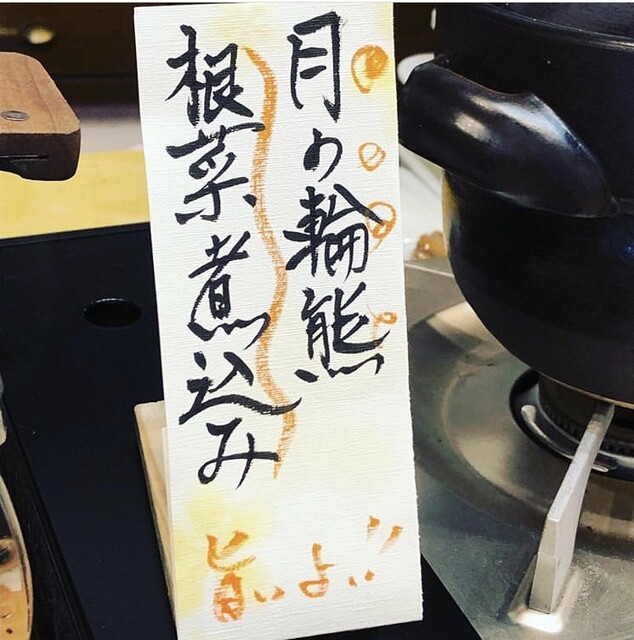 月の輪熊
根菜煮込み
旨いよい!!